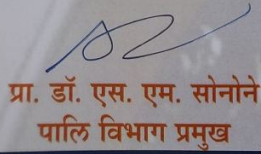 प्रा. डॉ. एस. एम. सोनोने
पालि विभाग प्रमुख